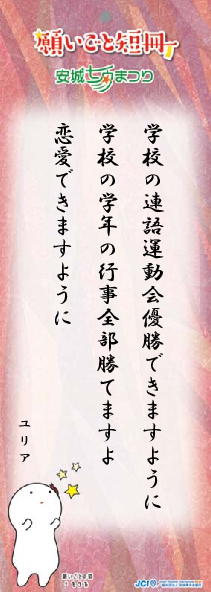 願いごと短冊
安城七夕まつり
学校の連語運動会優勝できますように
学校の学年の行事全部勝てますよ
恋愛できますように
ユリア
願いごと短冊
JCI